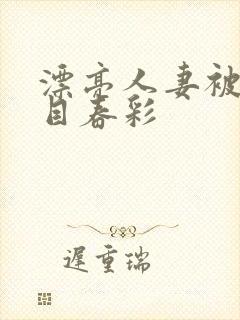 漂亮人妻被
目春彩
遅重瑞